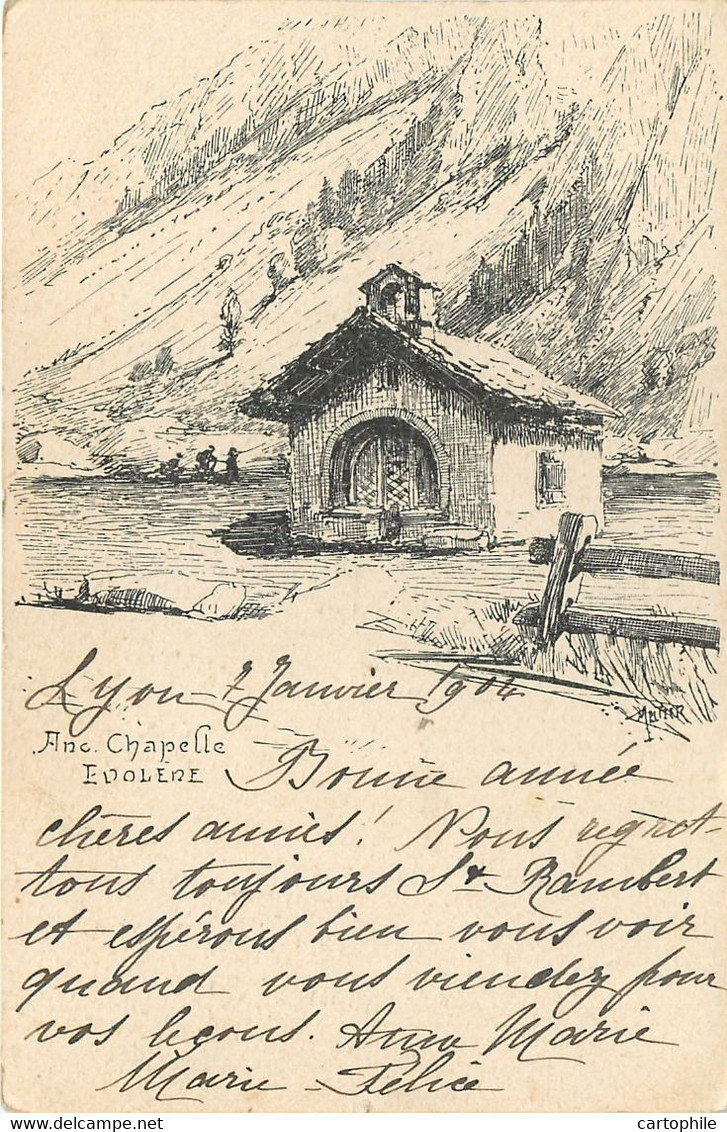 Lyon 7 Janvier 1904
Anc. Chapelle
EVOLÈNE
Bonne année
chères amies! Nous regret-
tons toujours St Rambert
et espérons bien vous voir
quand vous viendez pour
vos leçons. Anna Marie
Marie - Félice
cartophile